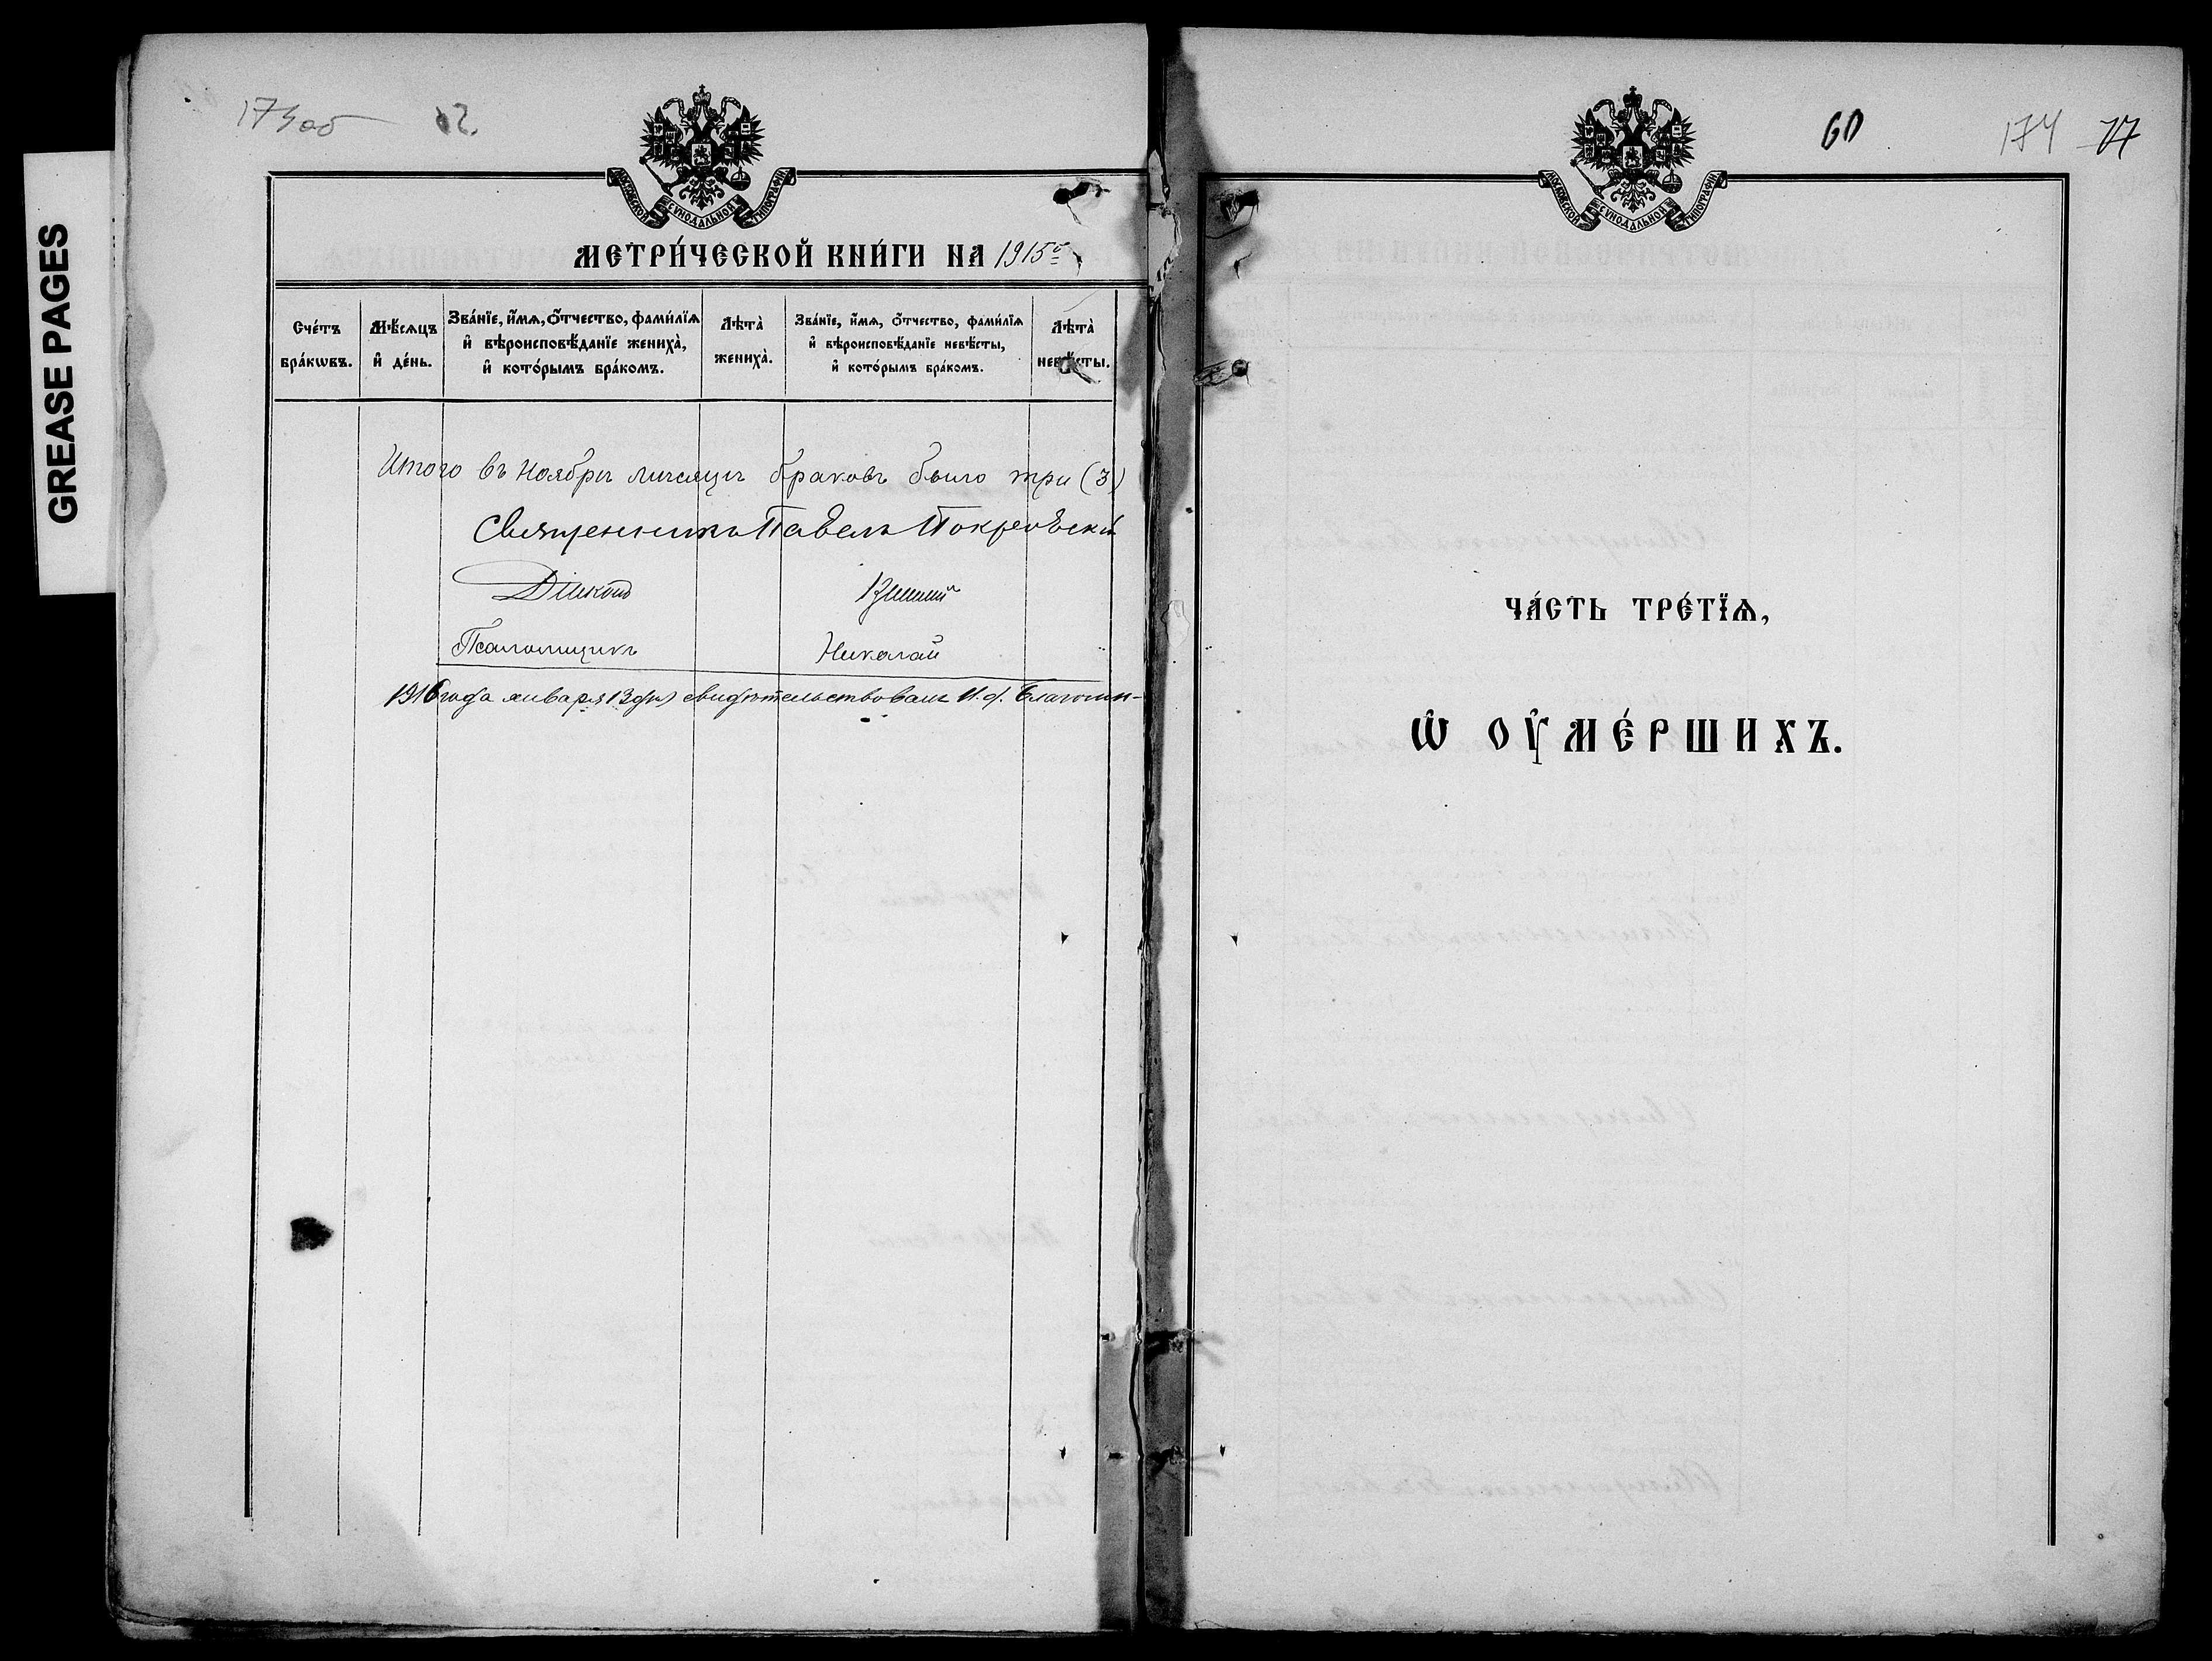 GREASE PAGES
173об
МОСКОВСКОЙ СѴНОДАЛЬНОЙ ТИПОГРАФІИ
МЕТРИ́ЧЕСКОЙ КНИ́ГИ НА 1915
Сче́тъ бра́кѡвъ.
Мѣ́сяцъ и҆ де́нь.
Зва́нїе, и҆́мѧ, ѻ҆́тчество, фами́лїѧ
и҆ вѣроисповѣ́данїе жениха̀,
и҆ кото́рымъ бра́комъ.
Лѣта̀ жениха̀.
Зва́нїе, и҆́мѧ, ѻ҆́тчество, фами́лїѧ
и҆ вѣроисповѣ́данїе невѣ́сты,
и҆ кото́рымъ бра́комъ.
Лѣта̀ невѣ́сты.
Итого въ Ноябрѣ мѣсяцѣ браковъ было три (3)
Священникъ Павелъ Покровскій
Діаконъ
Псаломщикъ Николай
1916 года января 13 дня свидѣтельствовалъ И. д. Благочин-
60
174
77
МОСКОВСКОЙ СѴНОДАЛЬНОЙ ТИПОГРАФІИ
ЧА́СТЬ ТРЕ́ТЇѦ,
Ѡ҆ ОУ҆МЕ́РШИХЪ.